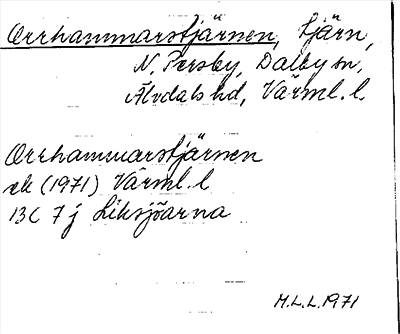 Orrhammarstjärnen, tjärn,
N. Persby, Dalby sn,
Älvdals hd, Värml. l.
Orrhammarstjärnen
ek (1971) Värml. l
13C 7j Liksjöarna
M.L.L. 1971